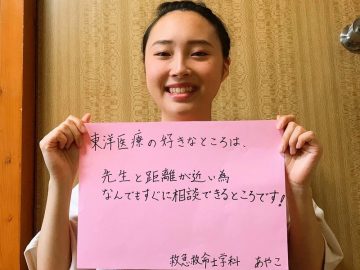 東洋医療の好きなところは、
先生と距離が近い為
なんでもすぐに相談できるところです!
救急救命士学科 あやこ